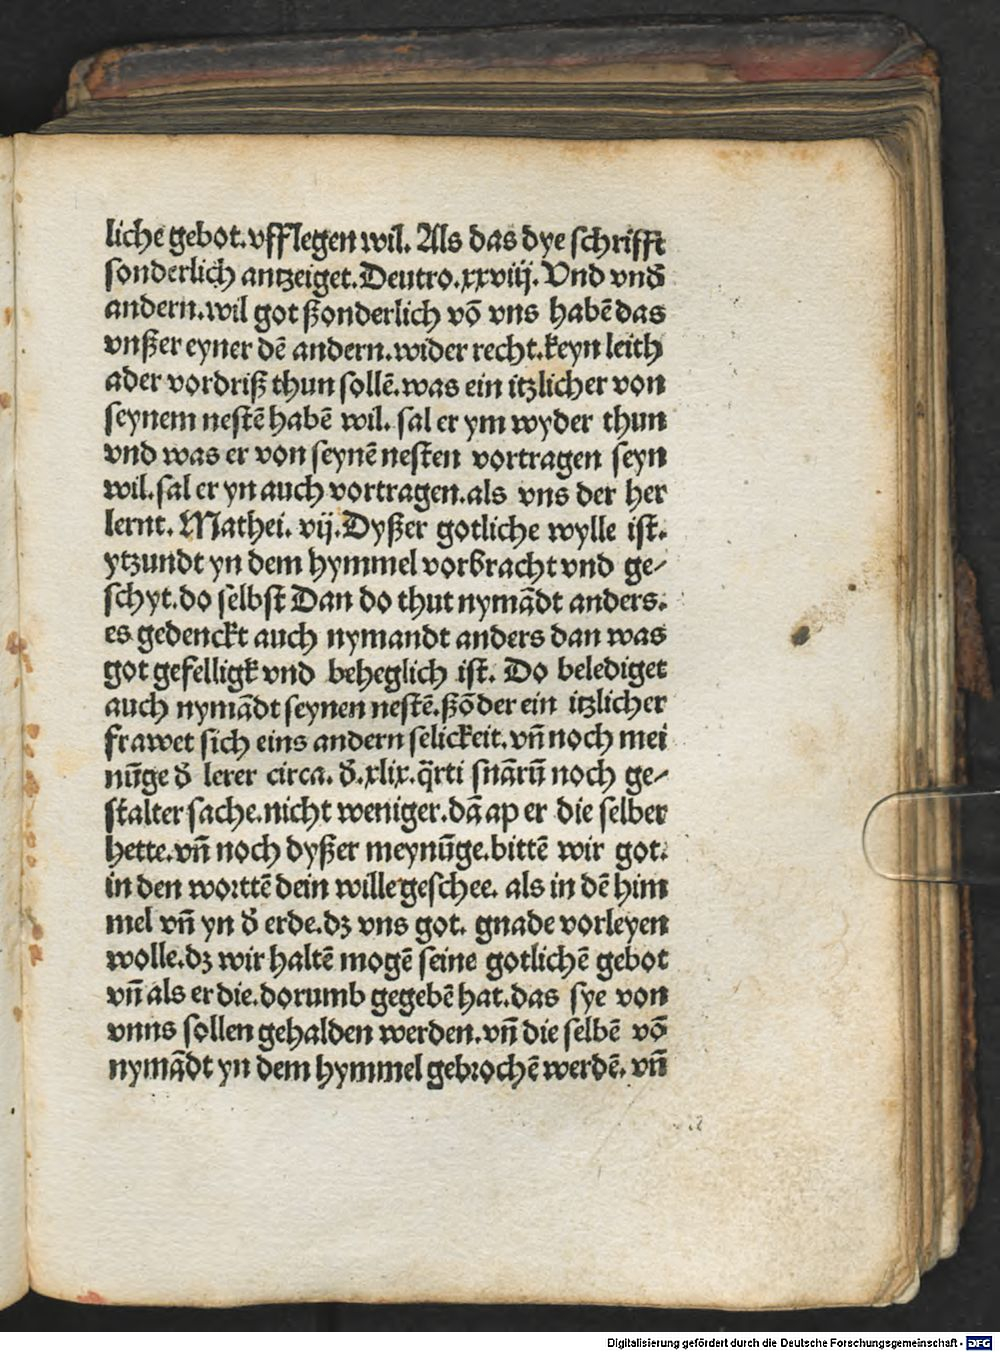 liche gebot. vff legen wil. Als das dye schrifft
sonderlich antzeiget. Deutro. xxviij. Vnd vnđ
andern. wil got ßonderlich vō vns habē das
vnßer eyner dē andern. wider recht. keyn leith
ader vordriß thun sollē. was ein itzlicher von
seynem nestē habē wil. sal er ym wyder thun
vnd was er von seynē nesten vortragen seyn
wil. sal er yn auch vortragen. als vns der her
lernt. Mathei. vij. Dyßer gotliche wylle ist.
ytzundt yn dem hymmel vorbracht vnd ge⸗
schyt. do selbst Dan do thut nymādt anders.
es gedenckt auch nymandt anders dan was
got gefelligk vnd beheglich ist. Do belediget
auch nymādt seynen nestē. ßōder ein itzlicher
frawet sich eins andern selickeit. vn̄ noch mei
nūge đ lerer circa. đ. xlix. q̄rti snārū noch ge⸗
stalter sache. nicht weniger. dā ap er die selber
hette. vn̄ noch dyßer meynūge. bittē wir got.
in den worttē dein wille geschee. als in dē him
mel vn̄ yn đ erde. dz vns got. gnade vorleyen
wolle. dz wir haltē mogē seine gotlichē gebot
vn̄ als er die. dorumb gegebē hat. das sye von
vnns sollen gehalden werden. vn̄ die selbē vō
nymādt yn dem hymmel gebrochē werdē. vn̄
Digitalisierung gefördert durch die Deutsche Forschungsgemeinschaft - DFG